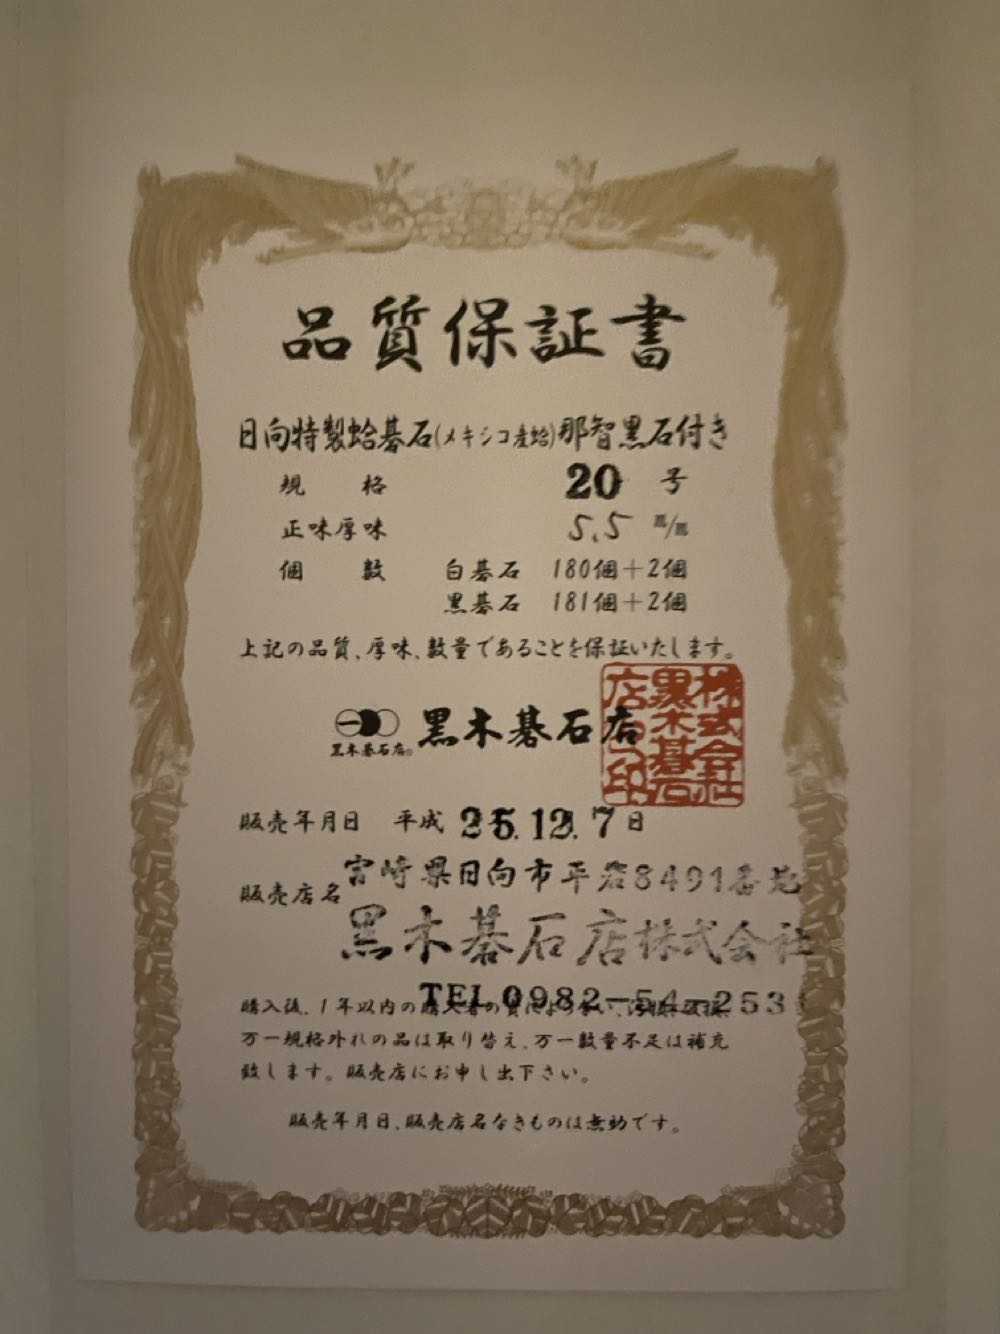 品質保証書
日向特製蛤碁石(メキシコ産蛤)那智黒石付き
規 格 20 号
正味厚味 5.5 ㍉/㍍
個 数 白碁石 180個+2個
黒碁石 181個+2個
上記の品質、厚味、数量であることを保証いたします。
黒木碁石店® 黒木碁石店
株式会社
黒木碁石
店之印
販売年月日 平成 25.12.7日
宮崎県日向市平岩8491番地
販売店名
黒木碁石店株式会社
TEL 0982-54-253
購入後、1年以内の購入者の
万一規格外れの品は取り替え、万一数量不足は補充
致します。販売店にお申し出下さい。
販売年月日、販売店名なきものは無効です。